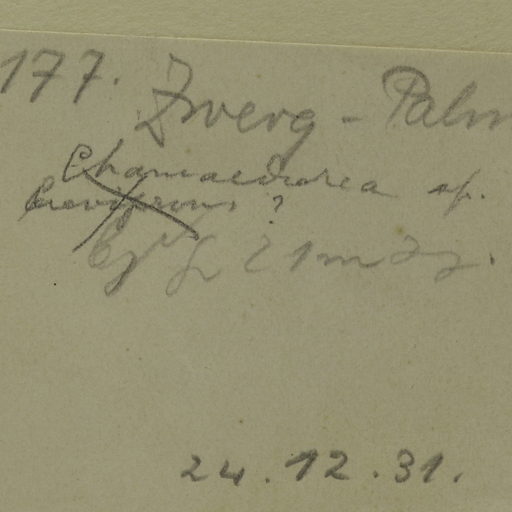 177. Zwerg-Palm
Chamaedorea sp.
brevifrons ?
24.12.31.